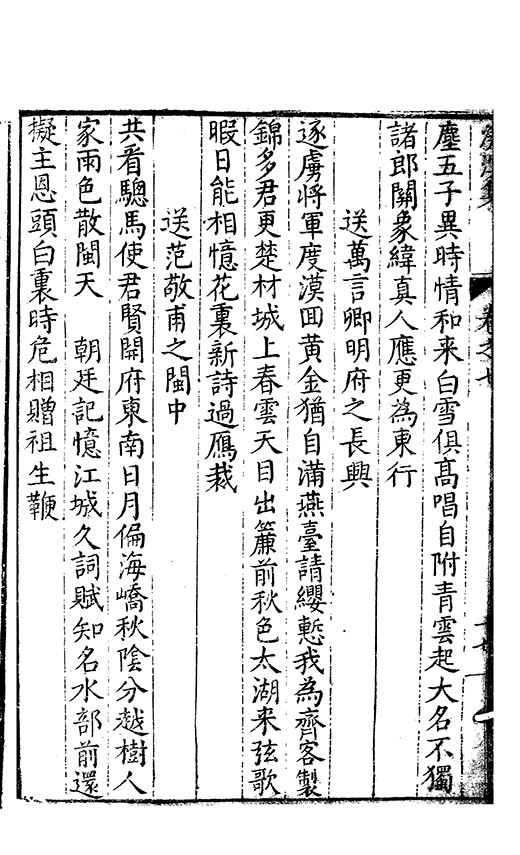 塵五子異時情和来白雪俱髙唱自附青雲起大名不獨
諸郎關象緯真人應更為東行
送萬言卿明府之長興
逐虜將軍度漠回黄金猶自滿燕臺請纓慙我為齊客製
錦多君更楚材城上春雲天目出簾前秋色太湖来弦歌
暇日能相憶花裏新詩過鴈裁
送范敬甫之閩中
共看驄馬使君賢開府東南日月偏海嶠秋陰分越樹人
家雨色散閩天　朝廷記憶江城久詞賦知名水部前還
擬主恩頭白裏時危相贈祖生鞭
卷之七